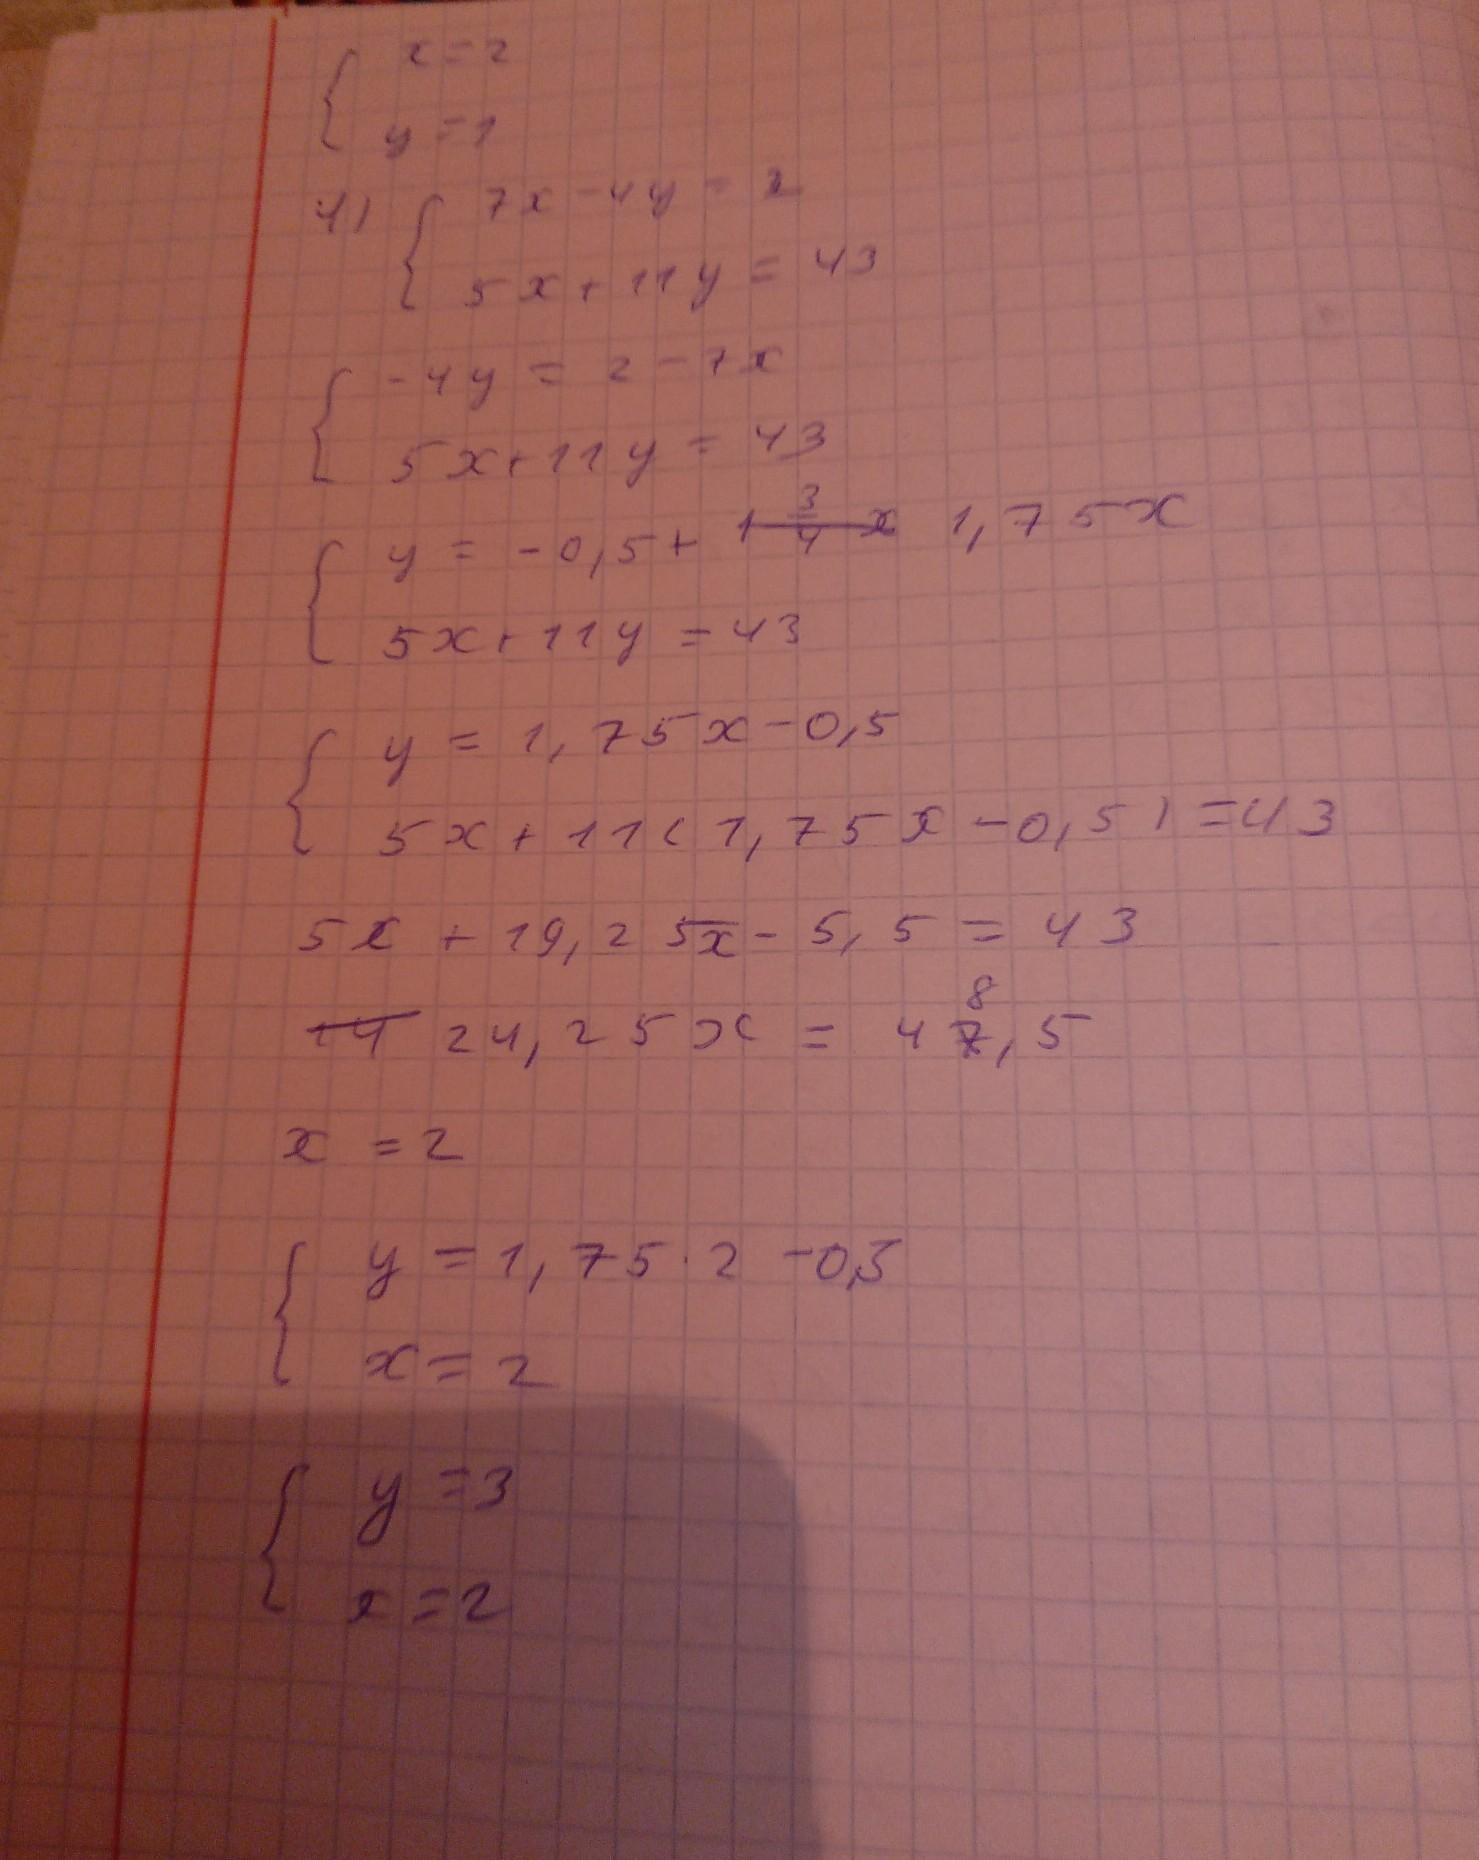 { x = 2
y = 1
4) { 7x - 4y = 2
5x + 11y = 43
{ -4y = 2 - 7x
5x + 11y = 43
{ y = -0,5 + 1 3/4 x 1,75x
5x + 11y = 43
{ y = 1,75x - 0,5
5x + 11(1,75x - 0,5) = 43
5x + 19,25x - 5,5 = 43
14 24,25x = 478,5
x = 2
{ y = 1,75 · 2 - 0,5
x = 2
{ y = 3
x = 2